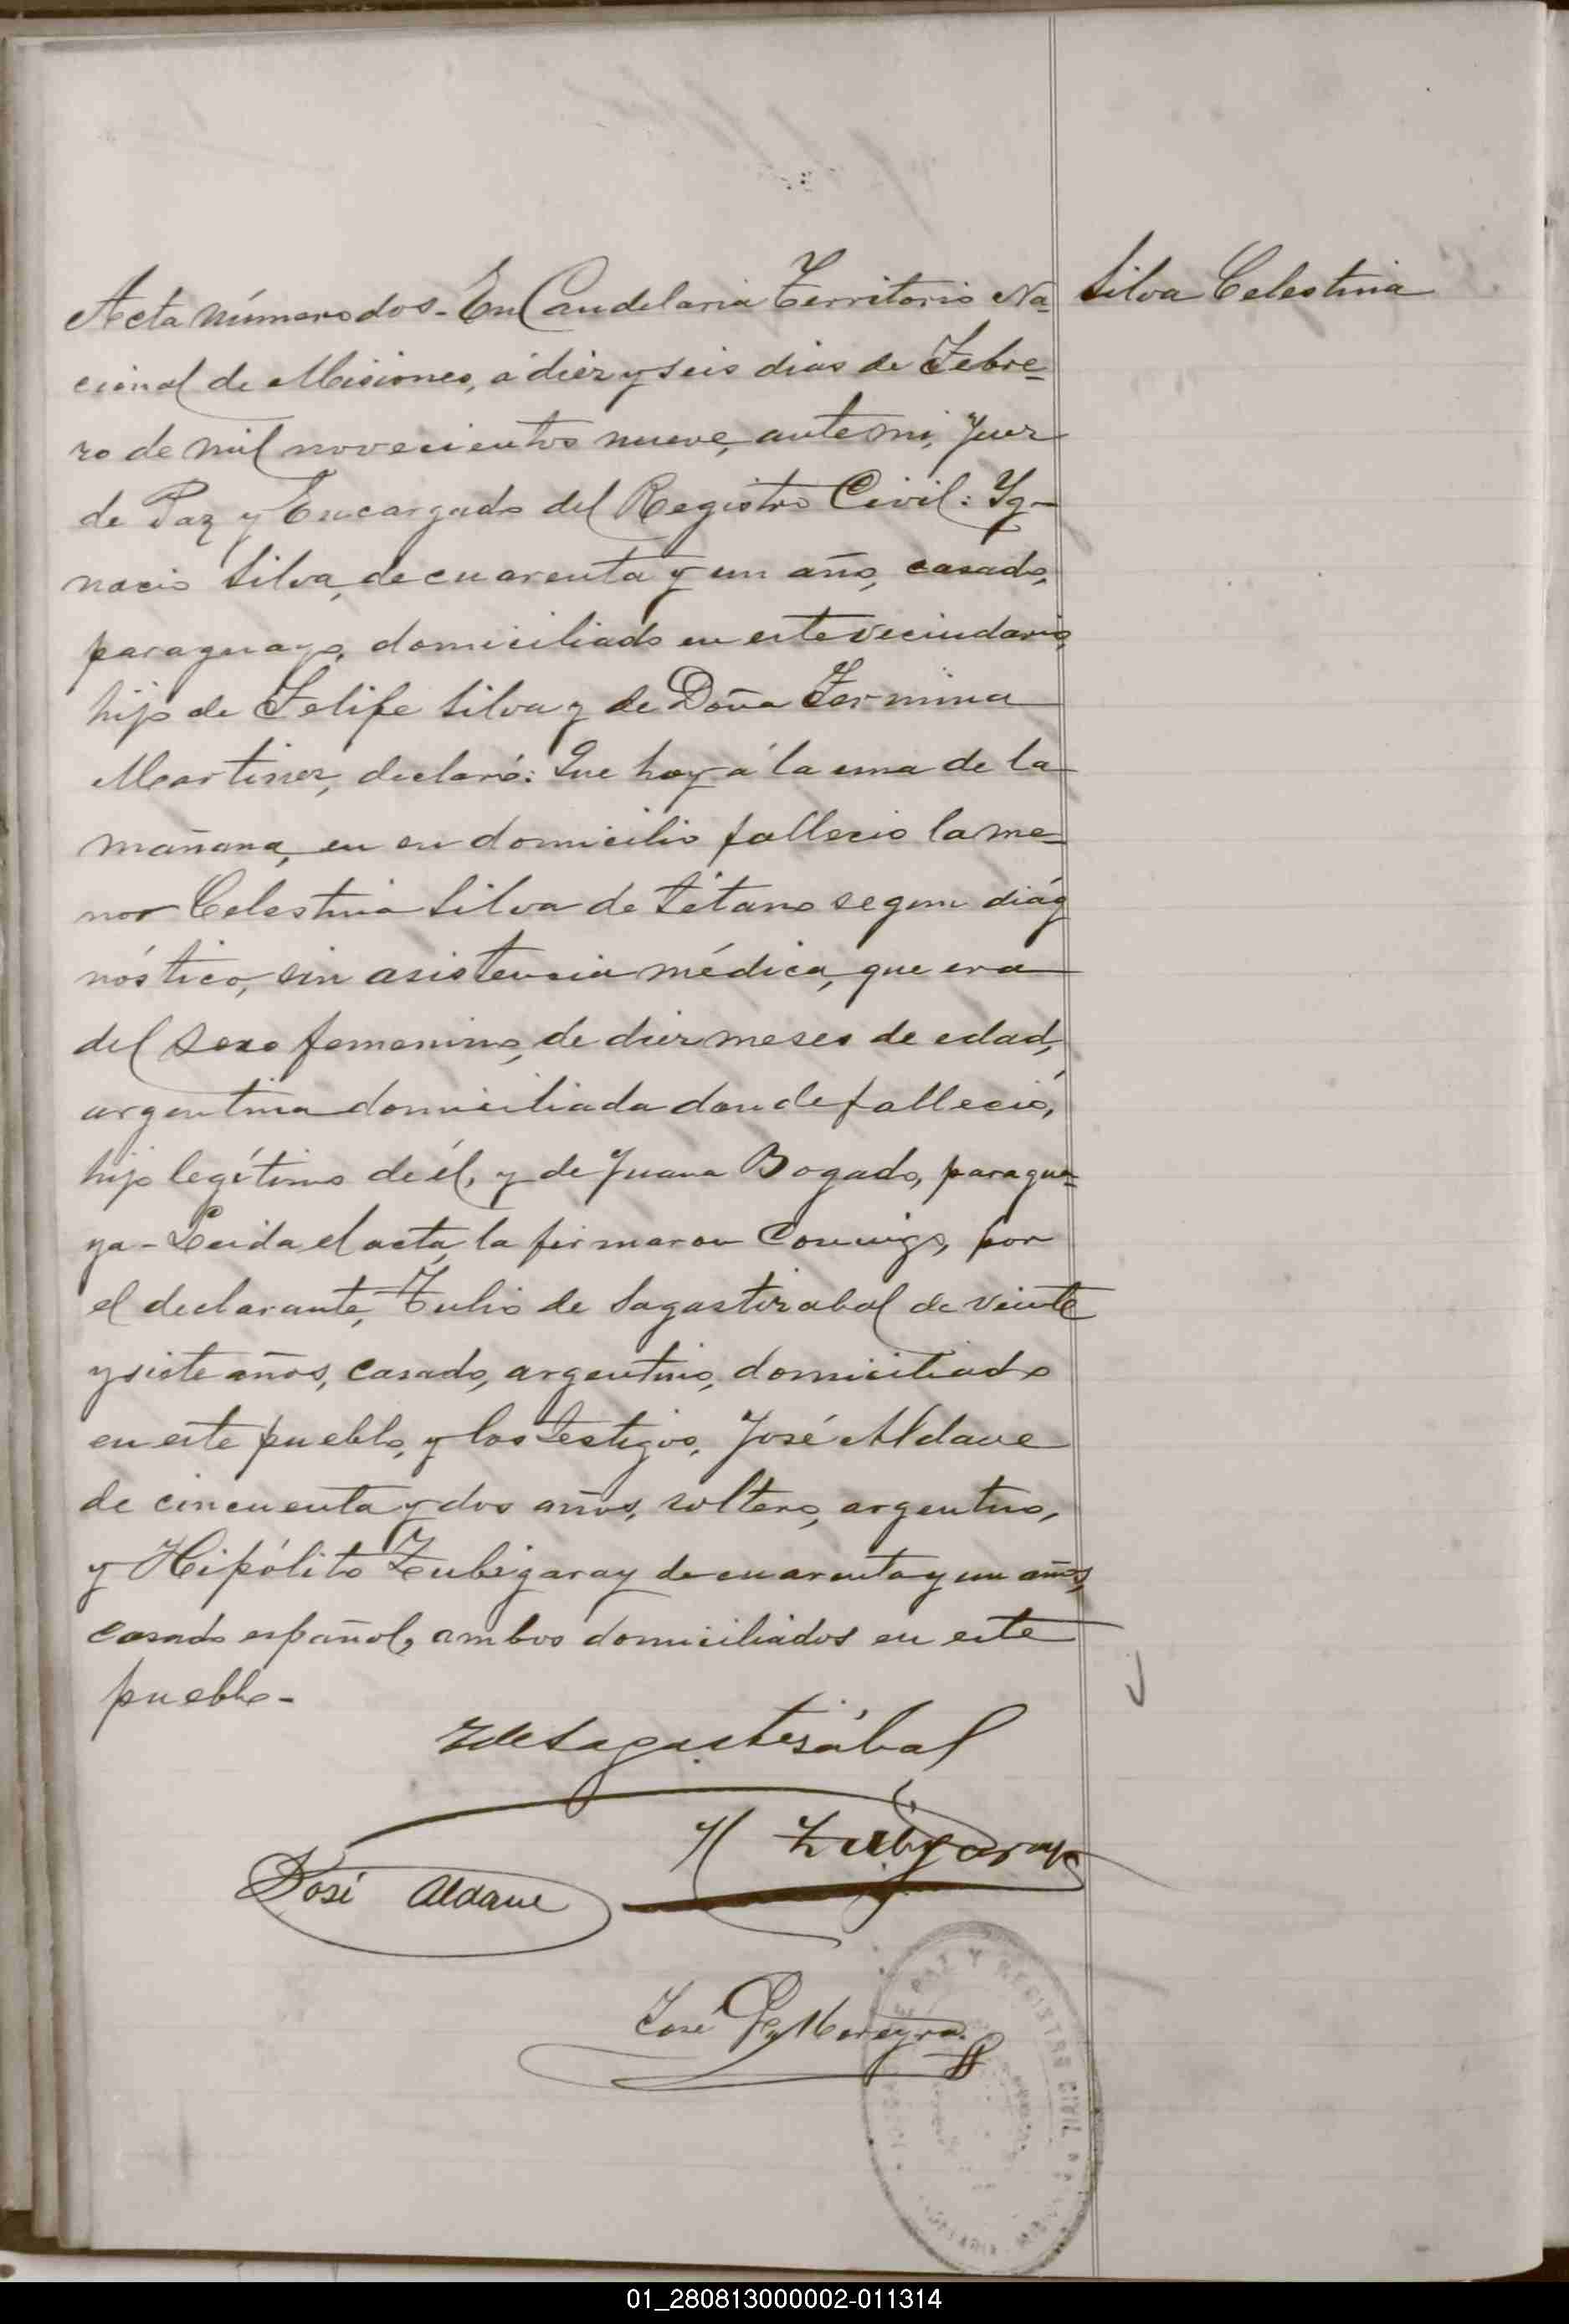 Silva Celestina
Acta número dos - En Candelaria Territorio Na-
cional de Misiones, á diez y seis dias de Febre-
ro de mil novecientos nueve, ante mi, Juez
de Paz y Encargado del Registro Civil: Yg-
nacio Silva, de cuarenta y un año, casado,
paraguayo, domiciliado en este vecindario,
hijo de Felipe Silva y de Doña Fermina
Martinez, declaró: Que hoy á la una de la
mañana, en su domicilio fallecio la me-
nor Celestina Silva de tétano segun diág
nóstico, sin asistencia médica, que era
del sexo femenino, de diez meses de edad,
argentina domiciliada donde falleció,
hijo legítimo de él, y de Juana Bogado, paragua-
ya - Leida el acta, la firmaron conmigo, por
el declarante, Tulio de Sagastizabal de veinte
y siete años, casado, argentino, domiciliado
en este pueblo, y los testigos, José Aldave
de cincuenta y dos años, soltero, argentino,
y Hipólito Zubigaray de cuarenta y un años,
casado español, ambos domiciliados en este
pueblo -
de Sagastizábal
H Zubigaray
José Aldave
José Moreyra
PAZ Y REGISTRO CIVIL
01_280813000002-011314